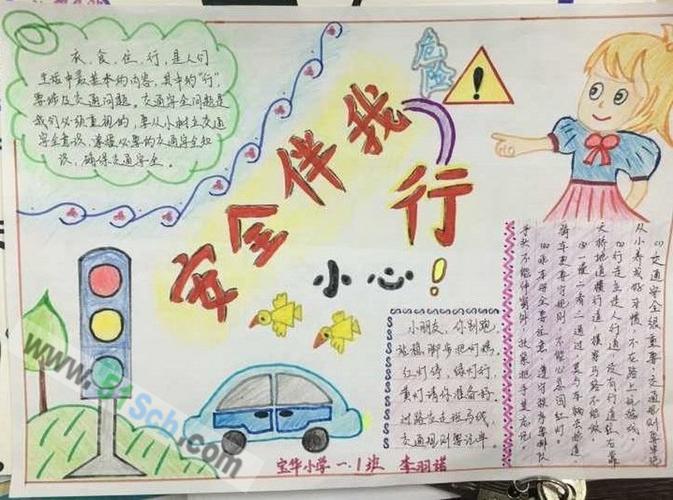 衣、食、住、行，是人们
生活中最基本的内容，其中的“行”
要涉及交通问题。交通安全问题是
我们必须重视的，要从小树立交通
安全意识，掌握必要的交通安全知
识，确保交通安全。
危险
!
安全伴我行
小心!
小朋友，你别跑，
站稳脚步把灯瞧，
红灯停，绿灯行，
黄灯请你准备好，
过路应走斑马线，
交通规则要记牢。
(1)交通安全很重要，交通规则要牢记
从小养成好习惯，不在路上玩游戏。
(2)行走应走人行道，没有行道往右靠
天桥地道横行道，横穿马路不能做
(3)一慢二看三通过，莫与车辆去抢道。
骑车更要守规则，不能心急闯红灯。
(4)乘车安全要注意，遵守秩序要排队
手头不能伸窗外，扶紧把手莫忘记。
宝华小学一.1班 李羽诺
www.51Sch.com